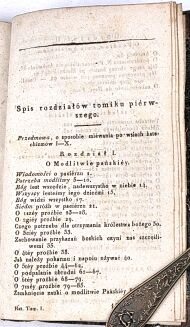 Spis rozdziałów tomiku piérw-
szego.
Przedmowa, o sposobie miewania po wsiach kate-
chizmów I—X.
Rozdział I.
O Modlitwie pańskiéy.
Wiadomości o pacierzu 1.
Potrzeba modlitwy 5—10.
Bóg iest wszędzie, nadewszystko w niebie 14.
Wszyscy iesteśmy iego dzieciäi
Bóg widzi wszystko 17.
Siedm próśb w pacierzu 21.
O 1széy prośbie 23—28.
O 2giéy prośbie
Czego potrzeba dla otrzymania królestwa bożego 30.
O 3ciéy prośbie 33.
Zachowanie przykazań boskich czyni nas szczęśli-
wemi 35.
O 4téy prośbie 38.
Jak należy pokarmu i napoiu używać 40.
O 5téy prośbie 44—62.
O podpalaniu obrudni 62—67.
O 6téy prośbie 68—75.
O 7méy prośbie 79—85.
Zamknięcie nauki o modlitwie Pańskiéy.
Tom. I.